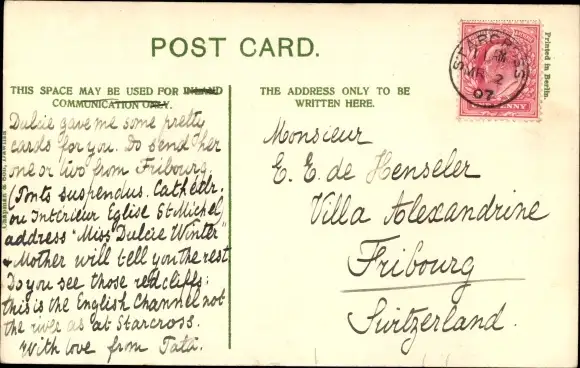 POST CARD.
THIS SPACE MAY BE USED FOR INLAND
COMMUNICATION ONLY.
THE ADDRESS ONLY TO BE
WRITTEN HERE.
Printed in Berlin.
STARCROSS
AM
MR 2
07
PENNY
Dulcie gave me some pretty
cards for you. Do send her
one or two from Fribourg.
(Ponts suspendus. Cathédr.
ou Intérieur Eglise St Michel)
address "Miss Dulcie Winter"
& Mother will tell you the rest
Do you see those red cliffs:
this is the English Channel not
the river as at Starcross.
With love from Tata.
Monsieur
E. E. de Henseler
Villa Alexandrine
Fribourg
Switzerland.